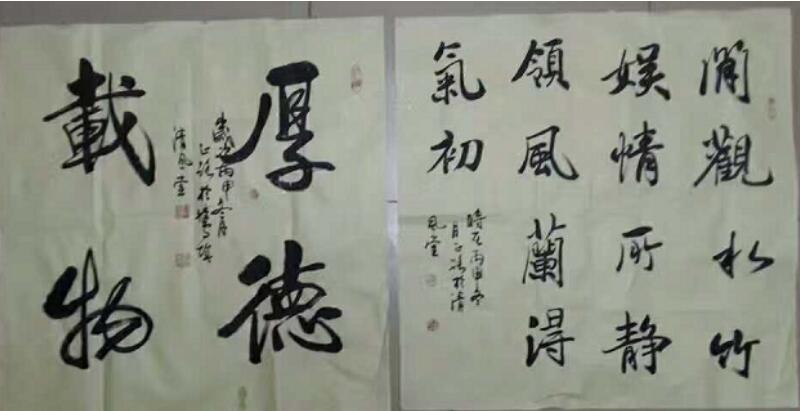 厚德
載物
歲次丙申冬月
清風堂
閒觀松竹
娛情所靜
領風蘭得
氣初
時在丙申冬
月正於清
風堂